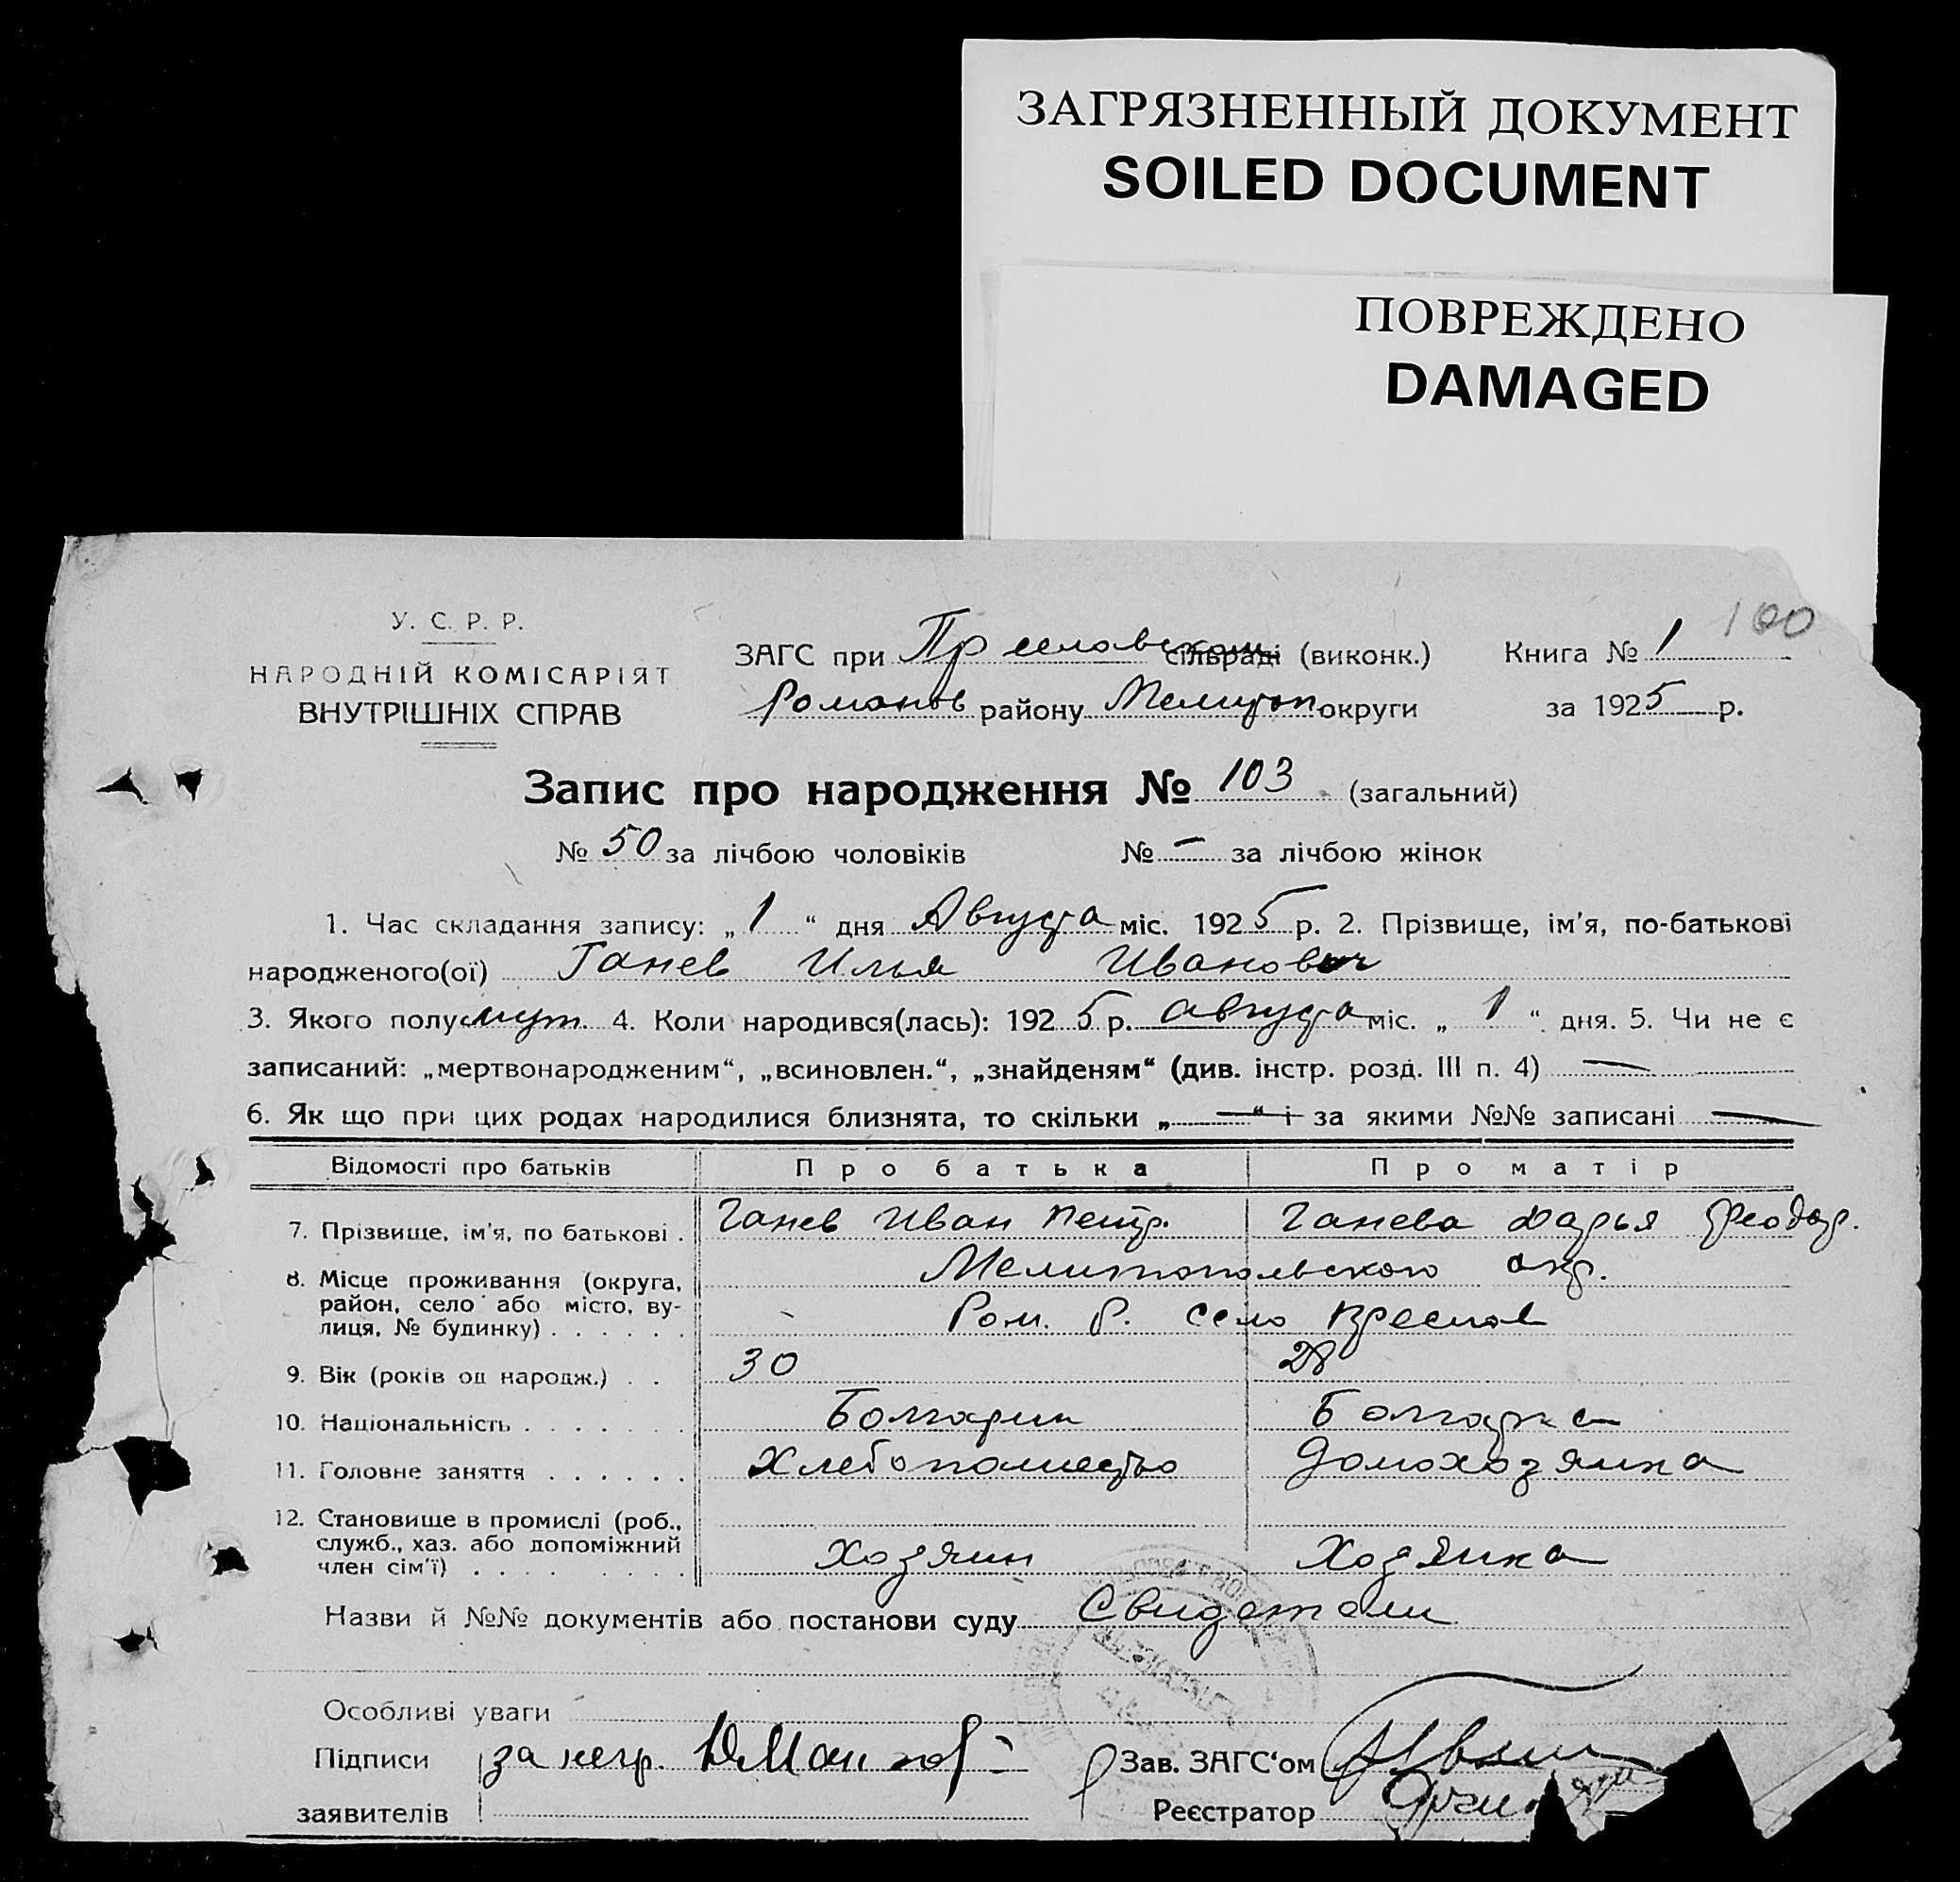 ЗАГРЯЗНЕННЫЙ ДОКУМЕНТ
SOILED DOCUMENT
ПОВРЕЖДЕНО
DAMAGED
100
У. С. Р. Р.
НАРОДНІЙ КОМІСАРІЯТ
ВНУТРІШНІХ СПРАВ
ЗАГС при Преславском сільраді (виконк.) Книга № 1
Романов району Мелитоп округи за 1925 р.
Запис про народження № 103 (загальний)
№ 50 за лічбою чоловіків № — за лічбою жінок
1. Час складання запису: „ 1 “ дня Августа міс. 1925 р. 2. Прізвище, ім’я, по-батькові
народженого(ої) Ганев Илья Иванович
3. Якого полу муж. 4. Коли народився(лась): 1925 р. августа міс. „ 1 “ дня. 5. Чи не є
записаний: „мертвонародженим“, „всиновлен.“, „знайденям“ (див. інстр. розд. III п. 4) —
6. Як що при цих родах народилися близнята, то скільки „ — “ і за якими №№ записані —
Відомості про батьків Про батька Про матір
7. Прізвище, ім’я, по батькові . Ганев Иван Петр. Ганева Дарья Феодор.
8. Місце проживання (округа, Мелитопольского окр.
район, село або місто, ву-
лиця, № будинку) . . . . . . Ром. р. село Преслав
9. Вік (років од народж.) . . 30 28
10. Національність . . . . . . . Болгарин Болгарка
11. Головне заняття . . . . . . Хлебопашество Домохозяйка
12. Становище в промислі (роб.,
служб., хаз. або допоміжний
член сім’ї) . . . . . . . . . Хозяин Хозяйка
Назви й №№ документів або постанови суду Свидетели
Особливі уваги
Підписи за негр. Зав. ЗАГС‘ом
заявителів Реєстратор